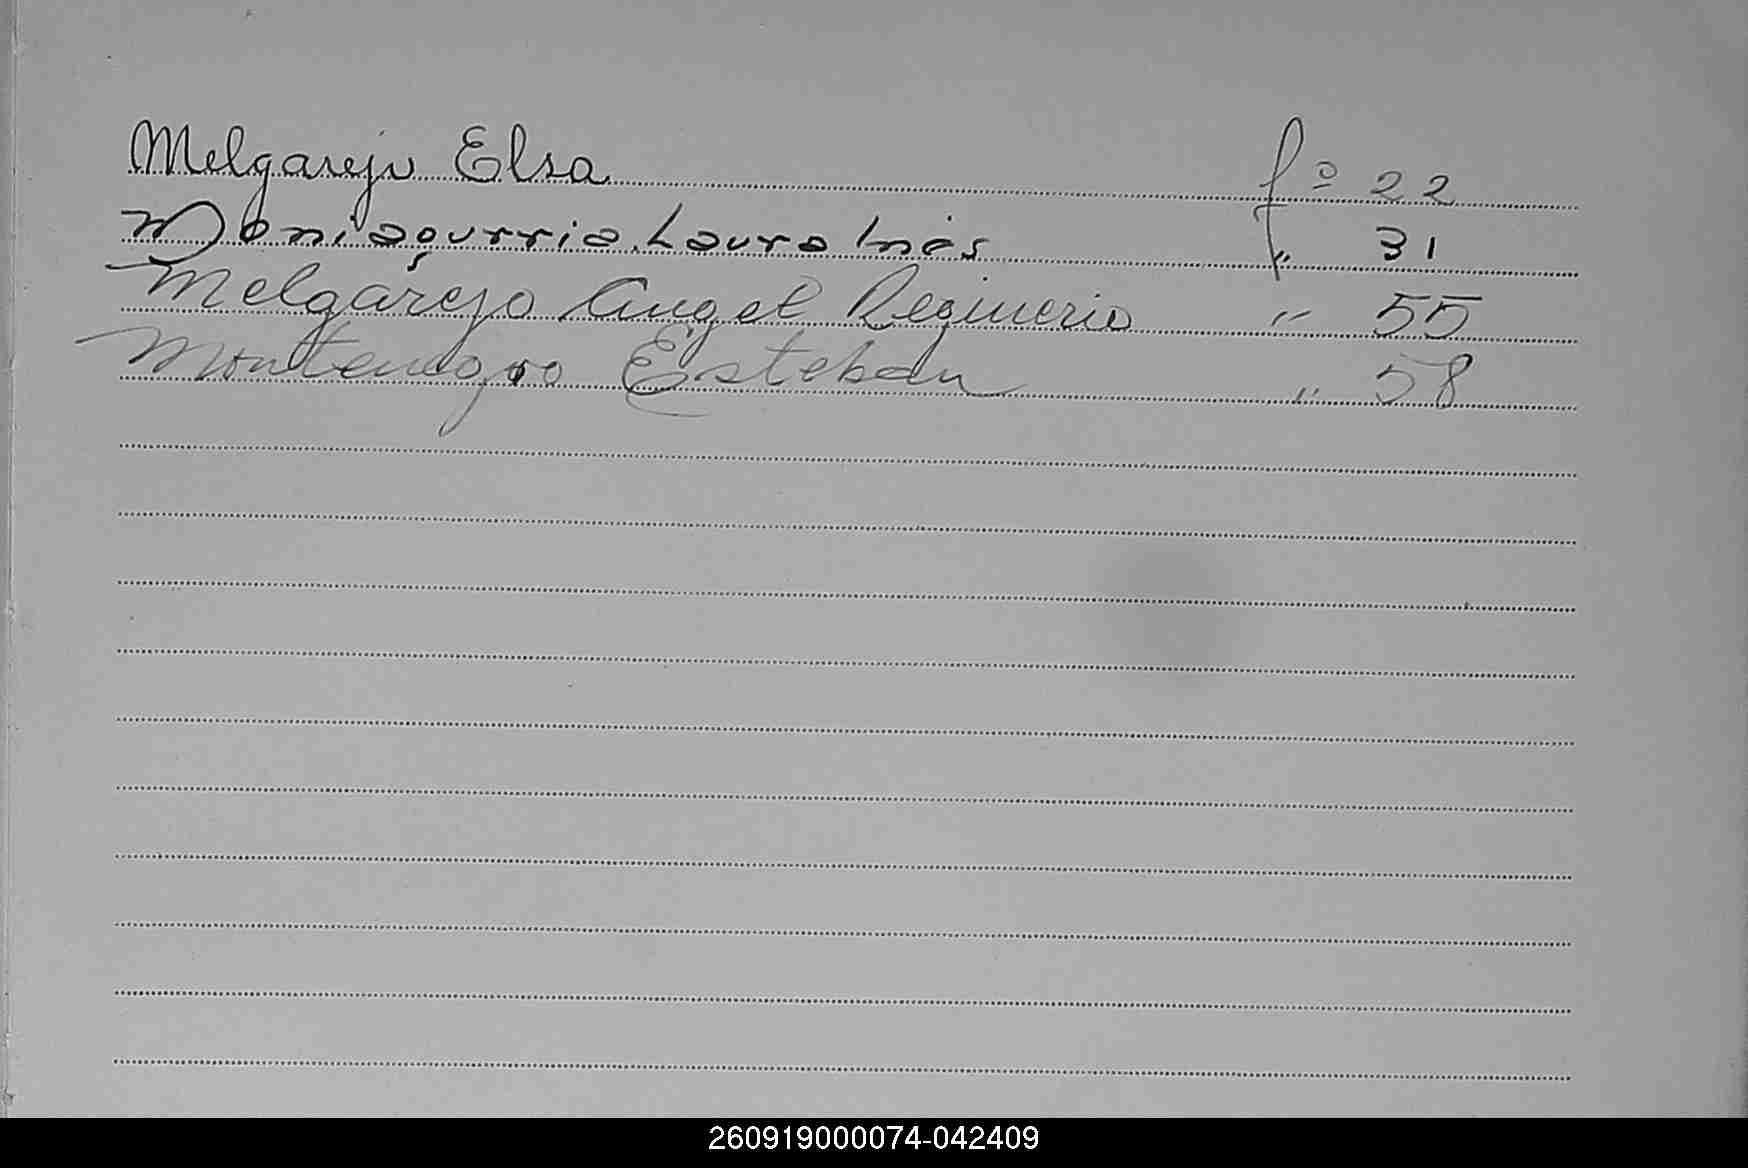 Melgarejo Elsa fº 22
Moniagurria Laura Inés " 31
Melgarejo Angel Reginerio " 55
Montenegro Esteban " 58
260919000074-042409